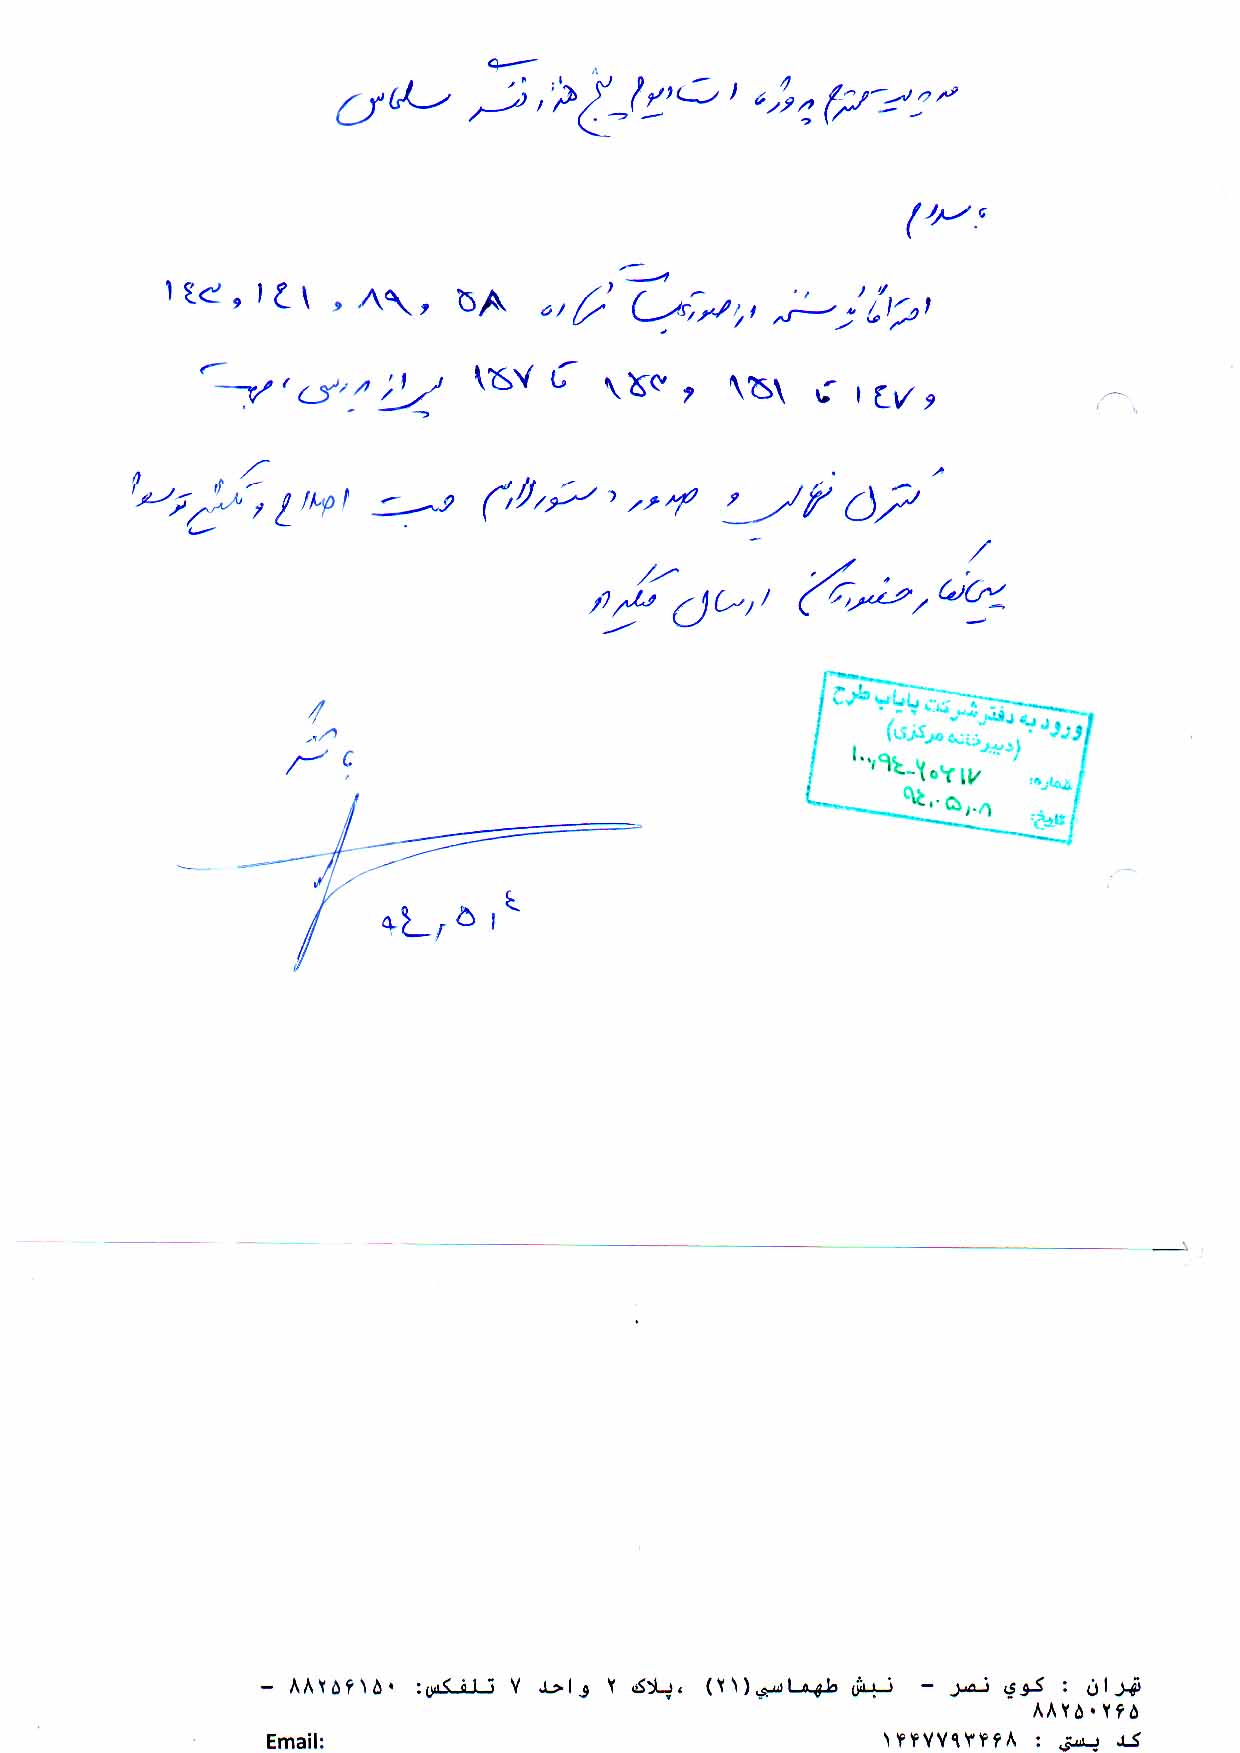 مدیریت محترم پروژه استادیوم پنج هزار نفری سلماس
با سلام
احتراماً نسخه از صورتجلسات شماره ۵۸ و ۸۹ و ۱۴۱ و ۱۴۳
و ۱۴۷ تا ۱۵۱ و ۱۵۳ تا ۱۵۷ پس از بررسی جهت
کنترل نهایی و صدور دستور لازم جهت اصلاح و تکثیر توسط
پیمانکار حضورتان ارسال میگردد
با تشکر
۹۴,۵,۴
ورود به دفتر شرکت پایاب طرح
(دبیرخانه مرکزی)
شماره:
تاریخ: ۹۴,۰۵,۰۸
تهران : کوي نصر - نبش طهماسبي(۲۱) ،پلاک ۲ واحد ۷ تلفکس: ۸۸۲۵۶۱۵۰ -
۸۸۲۵۰۲۶۵
کد پستي : ۱۴۴۷۷۹۳۴۶۸ Email: